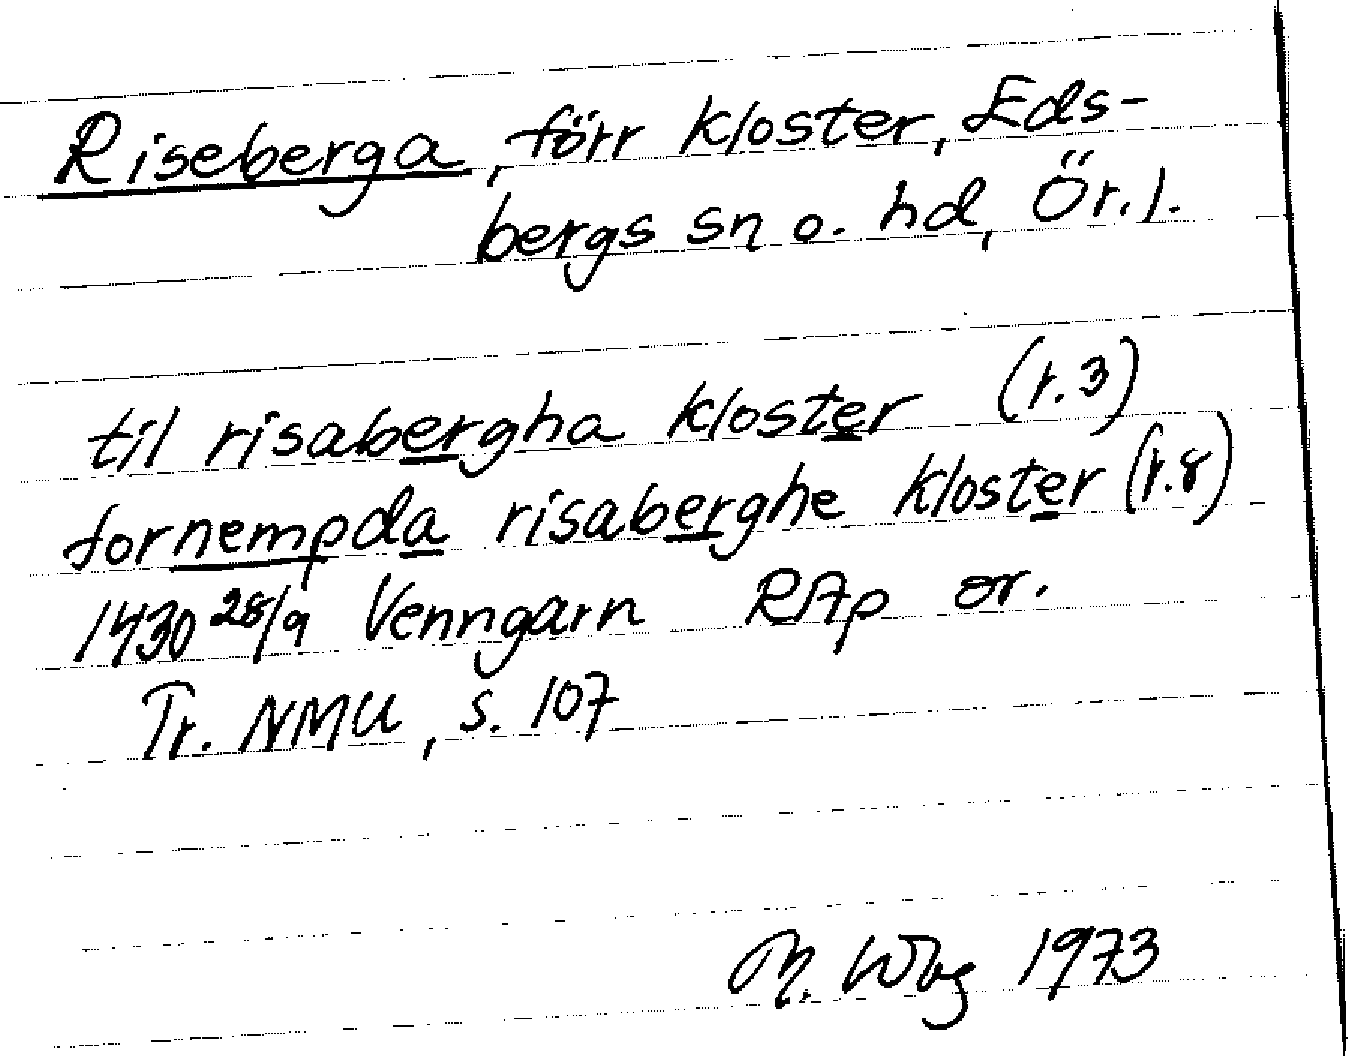 Riseberga, förr kloster, Eds-
bergs sn o. hd, Ör.l.
til risabergha kloster (r.3)
fornempda risaberghe kloster (r.8)
1430 28/9 Venngarn RAp or.
Tr. NMU, s. 107
M. Wbg 1973